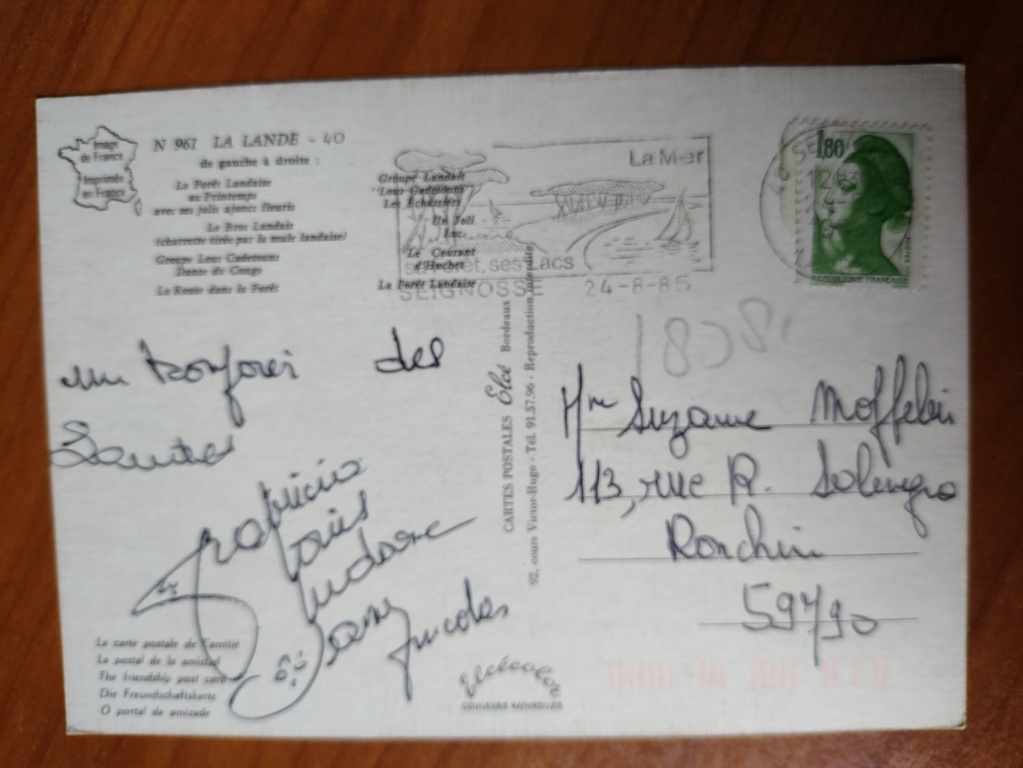 Image
de France
Imprimée
en France
N 961 LA LANDE - 40
de gauche à droite :
La Forêt Landaise
au Printemps
avec ses jolis ajoncs fleuris
Le Bros Landais
(charrette tirée par la mule landaise)
Groupe Lous Cadetouns
Danse du Congo
La Route dans la Forêt
Groupe Landais
"Lous Cadetouns"
Les Echassiers
Un Joli
Lac
Le Courant
d'Huchet
La Forêt Landaise
La Mer
et, ses Lacs
SEIGNOSSE 24-8-85
1,80
REPUBLIQUE FRANÇAISE
un bonjour des
Landes
Patricia
Louis
Jean
Nicolas
CARTES POSTALES Elcé Bordeaux
92, cours Victor-Hugo - Tél. 91.57.96 - Reproduction interdite
Mme Suzanne
113, rue R. Salengro
Ronchin
59790
La carte postale de l'amitié
La postal de la amistad
The friendship post card
Die Freundschaftskarte
O postal de amizade
Elcécolor
COULEURS NATURELLES